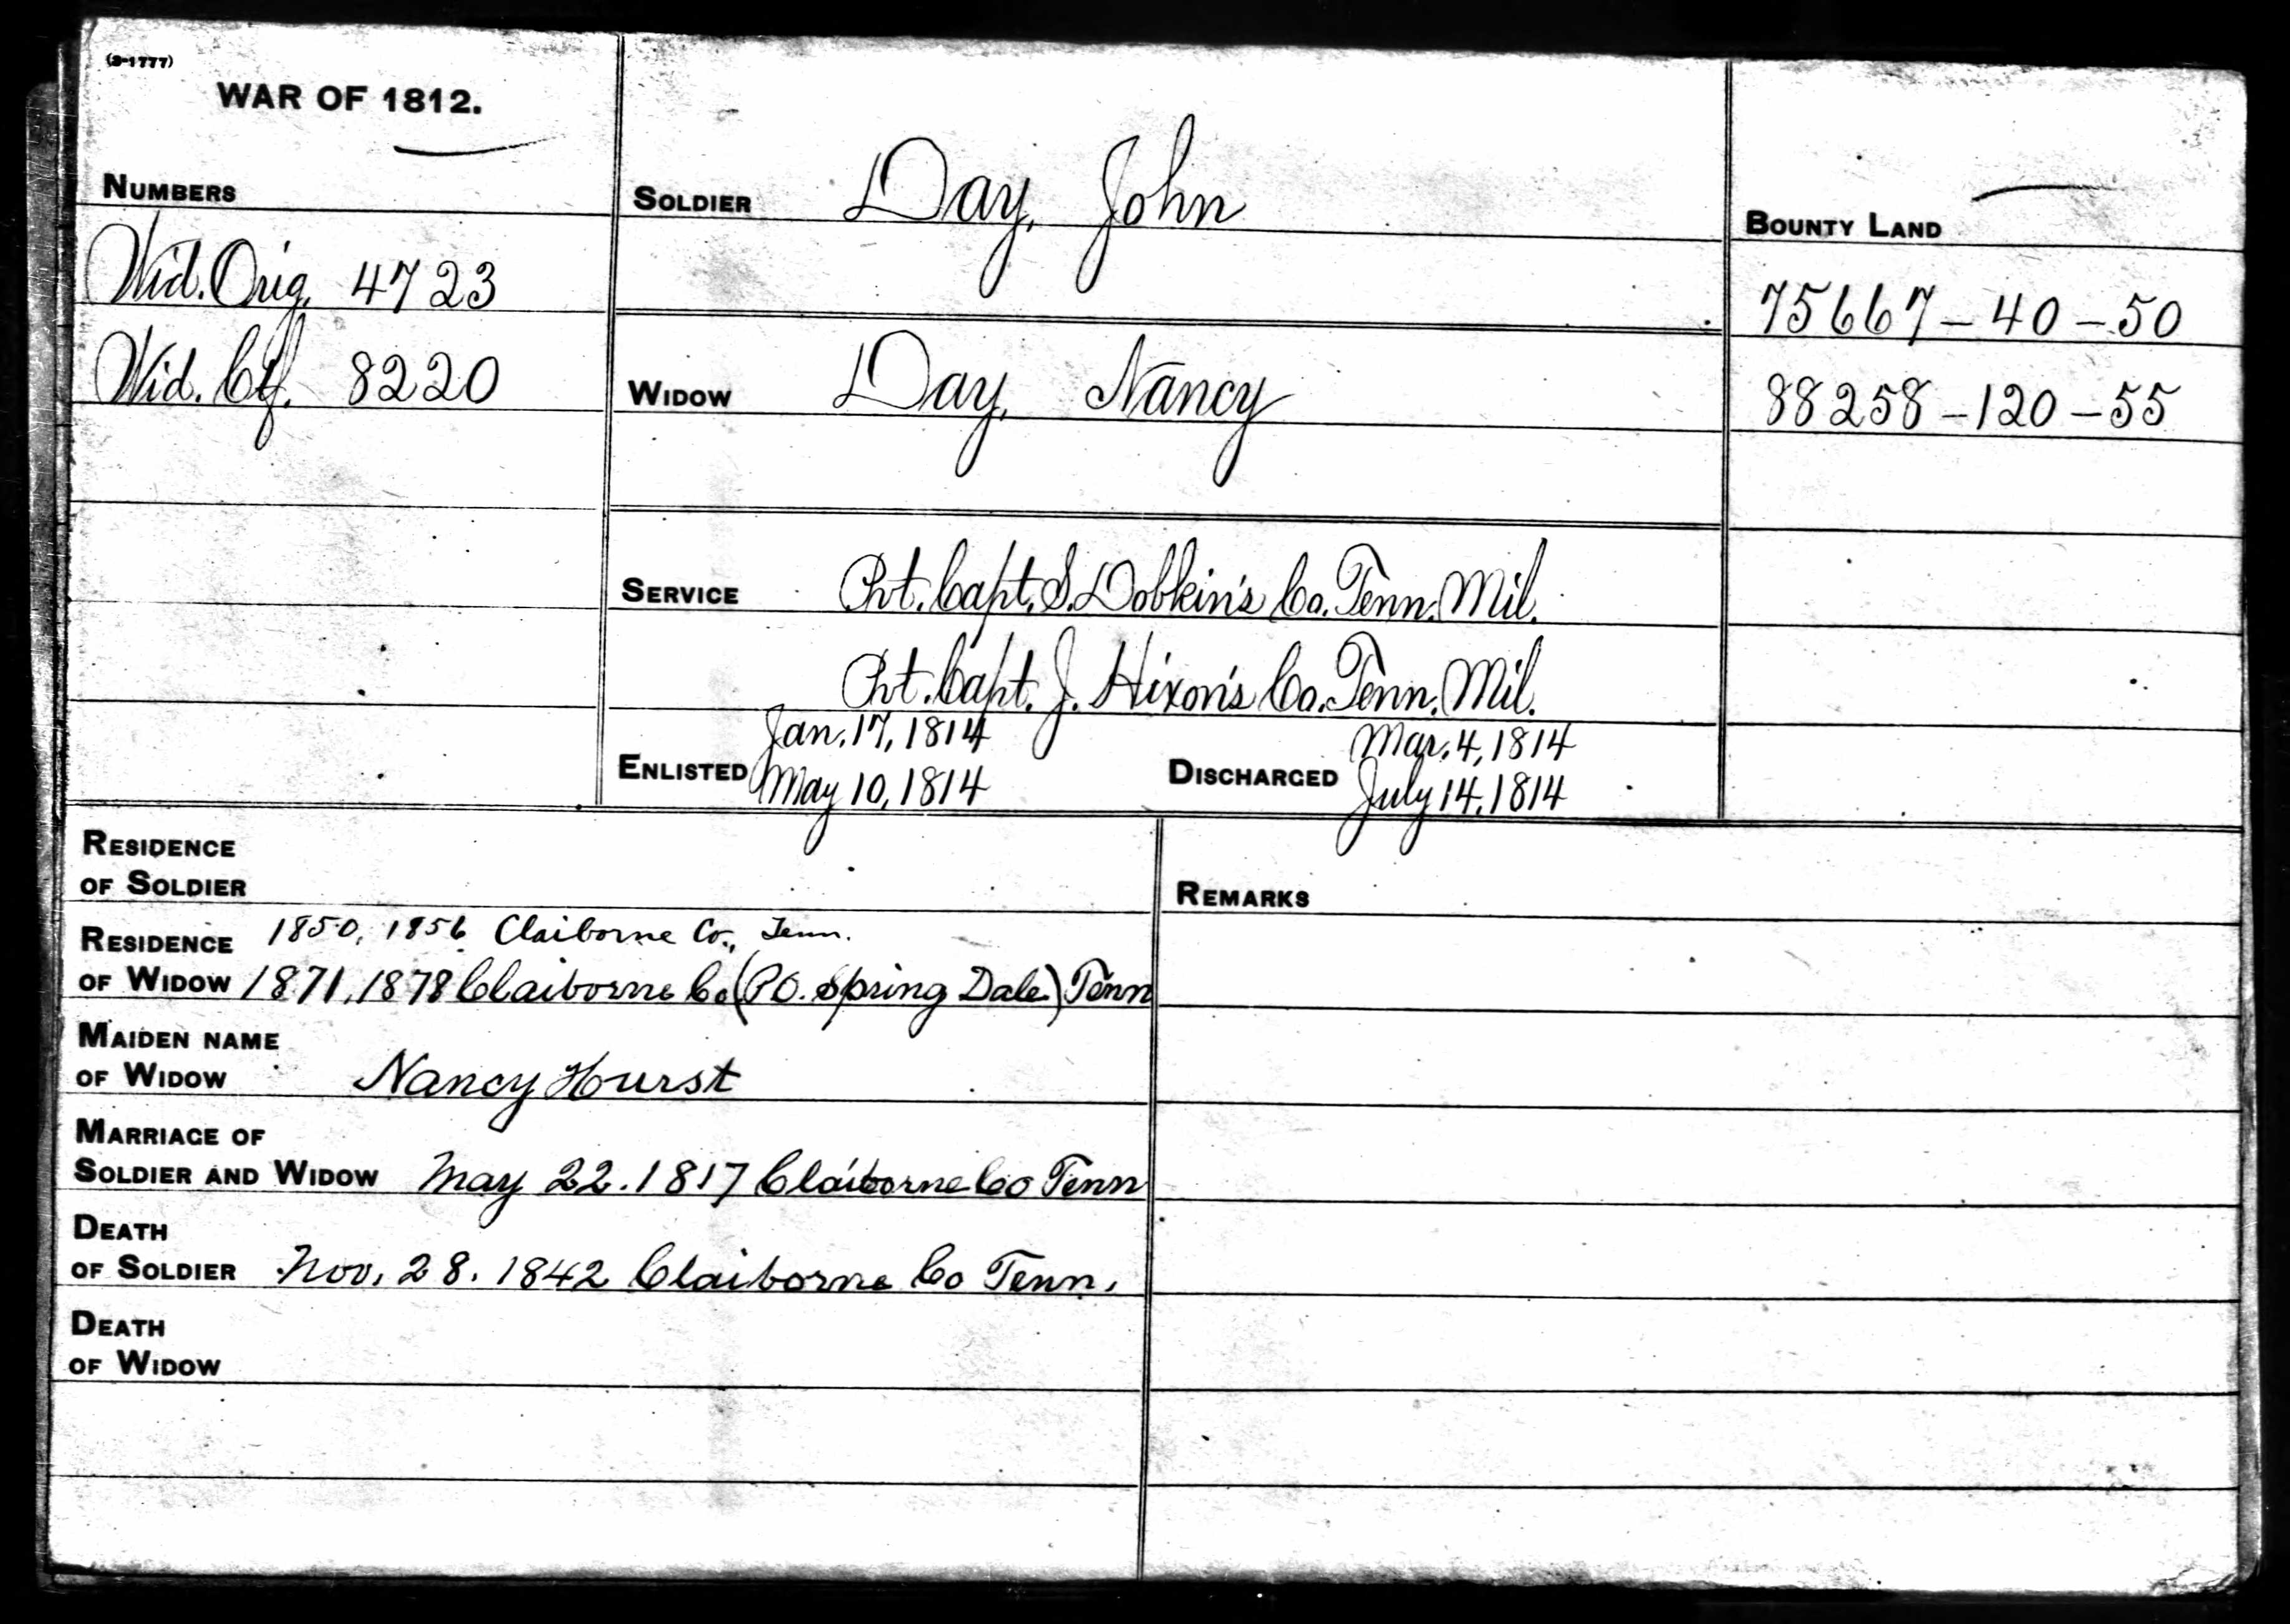 (3-1777)
WAR OF 1812.
NUMBERS
Wid. Orig. 4723
Wid. Ctf. 8220
SOLDIER Day, John
WIDOW Day, Nancy
SERVICE Pvt. Capt. S. Dobkin's Co. Tenn. Mil.
Pvt. Capt. J. Hixon's Co. Tenn. Mil.
ENLISTED Jan. 17, 1814
May 10, 1814
DISCHARGED Mar. 4, 1814
July 14, 1814
BOUNTY LAND
75667-40-50
88258-120-55
RESIDENCE
OF SOLDIER
RESIDENCE 1850, 1856 Claiborne Co., Tenn.
OF WIDOW 1871, 1878 Claiborne Co (P.O. Spring Dale) Tenn
MAIDEN NAME
OF WIDOW Nancy Hurst
MARRIAGE OF
SOLDIER AND WIDOW May 22. 1817 Claiborne Co Tenn
DEATH
OF SOLDIER Nov. 28. 1842 Claiborne Co Tenn.
DEATH
OF WIDOW
REMARKS